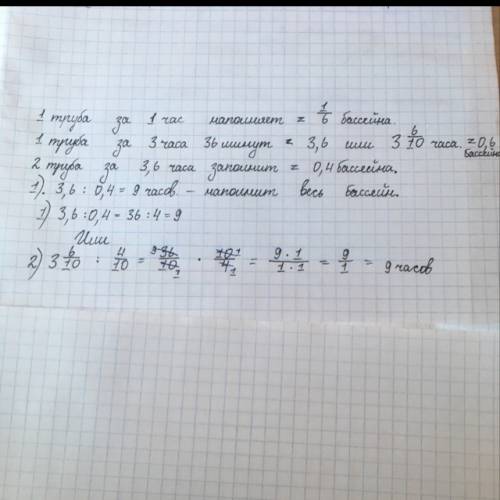 1 труба за 1 час наполняет = 1/6 бассейна.
1 труба за 3 часа 36 минут = 3,6 или 3 6/10 часа. = 0,6 бассейна
2 труба за 3,6 часа заполнит = 0,4 бассейна.
1). 3,6 : 0,4 = 9 часов – наполнит весь бассейн.
1) 3,6 : 0,4 = 36 : 4 = 9
Или
2) 3 6/10 : 4/10 = 9 36/10 1 · 10 1/4 1 = 9·1/1·1 = 9/1 = 9 часов